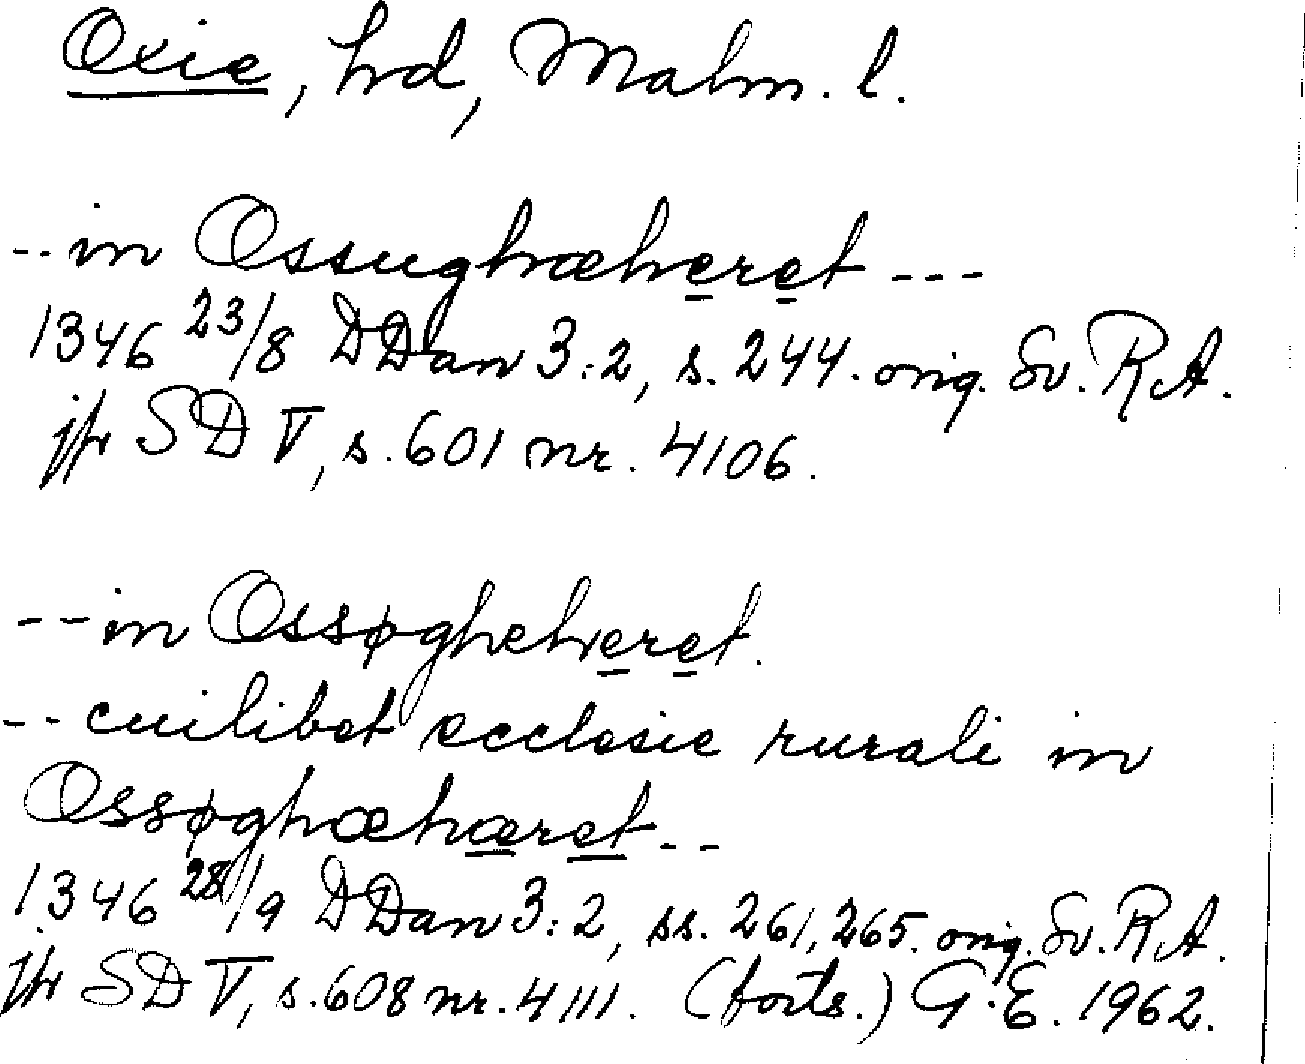 Oxie, hd, Malm. l.
-- in Ossughæheret ---
1346 23/8 DDan 3:2, s. 244. orig. Sv. R.A.
jfr SD V, s. 601 nr. 4106.
-- in Ossøgheheret.
-- cuilibet ecclesie rurali in
Ossøghæhæret --
1346 28/9 DDan 3:2, ss. 261, 265. orig. Sv. R.A.
jfr SD V, s. 608 nr. 4111. (forts.) G.E. 1962.